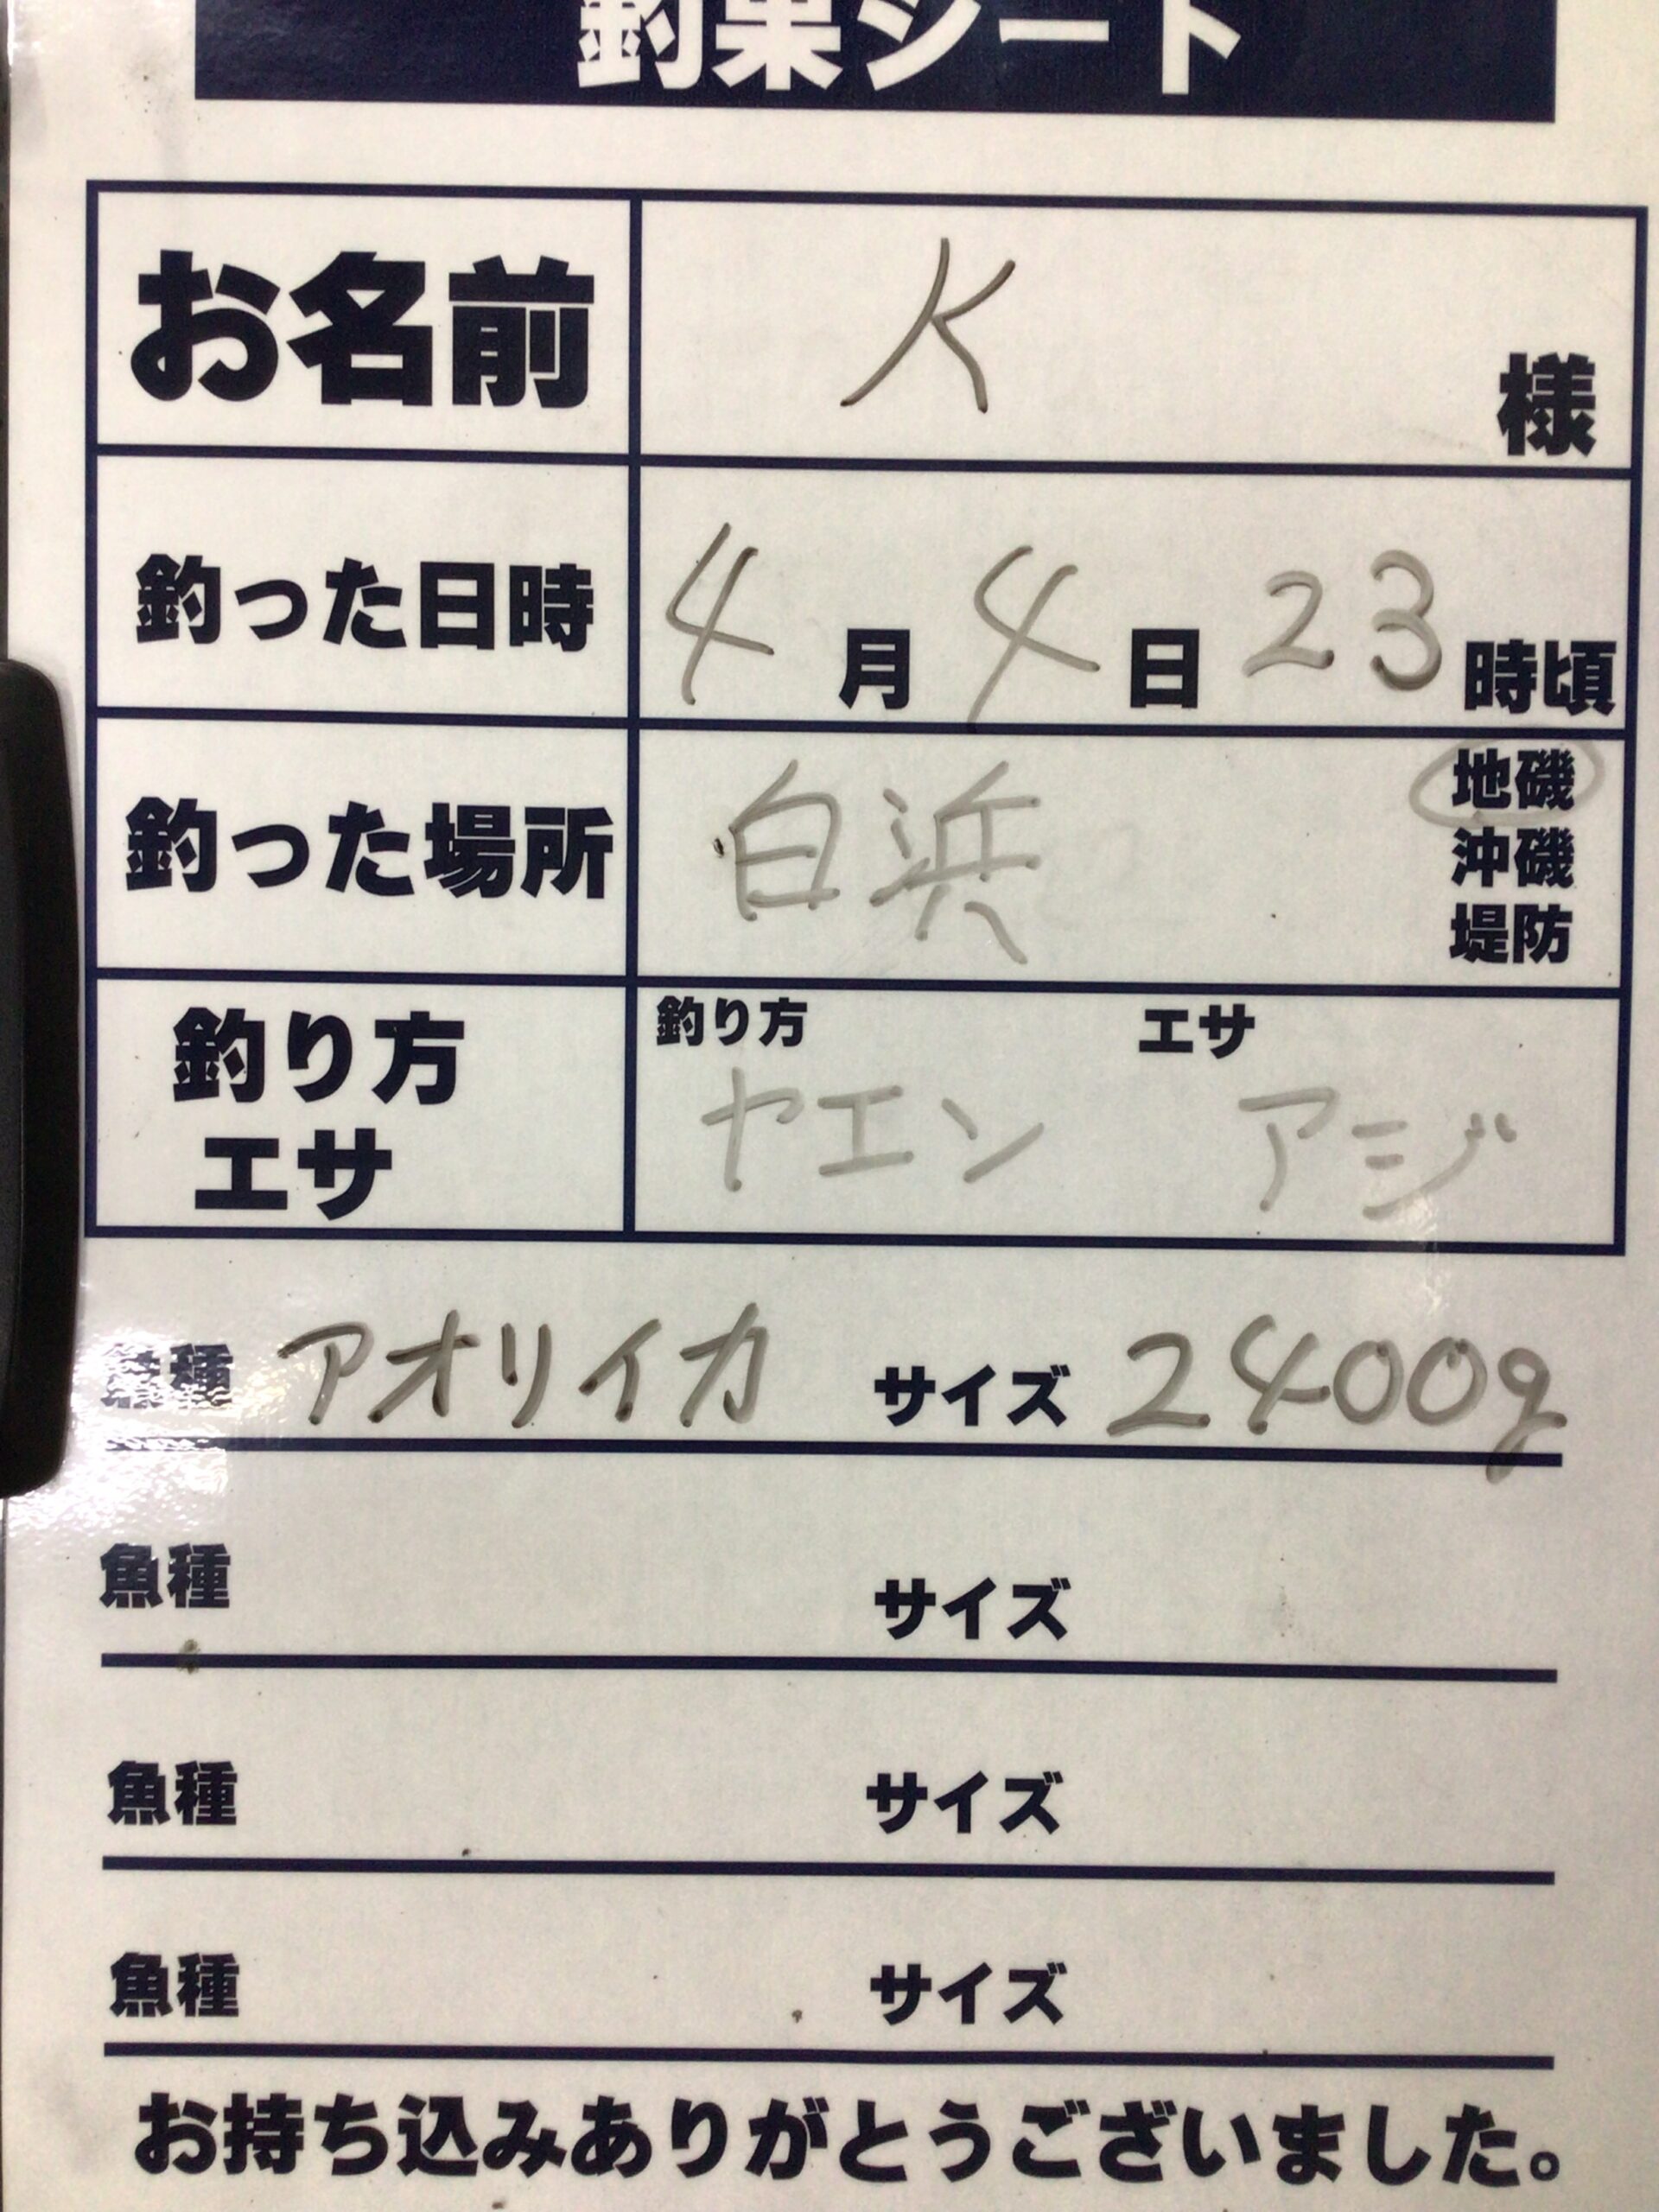 釣果シート
お名前 K 様
釣った日時 4月 4日 23時頃
釣った場所 白浜 地磯
沖磯
堤防
釣り方 エサ
釣り方
エサ
ヤエン アジ
魚種 アオリイカ サイズ 2400g
魚種 サイズ
魚種 サイズ
魚種 サイズ
お持ち込みありがとうございました。